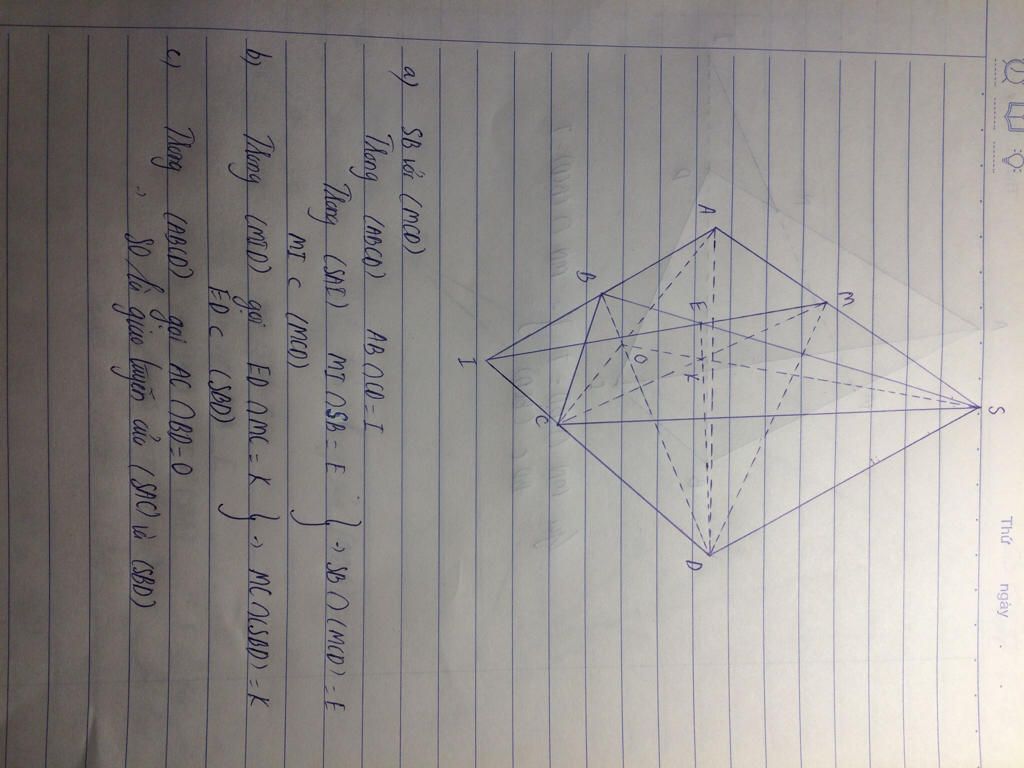 Thứ ngày
S
M
A
D
E
K
B
O
C
I
a) SB với (MCD)
Trong (ABCD) AB ∩ CD = I
Trong (SAE) MI ∩ SB = E } → SB ∩ (MCD) = E
MI ⊂ (MCD)
b) Trong (MID) gọi ED ∩ MC = K } → MC ∩ (SBD) = K
ED ⊂ (SBD)
c) Trong (ABCD) gọi AC ∩ BD = O
→ SO là giao tuyến của (SAC) và (SBD)